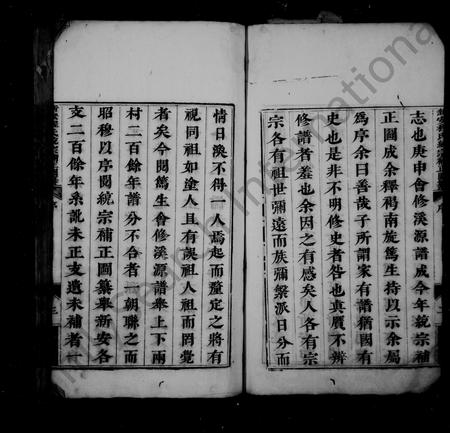 志也庚申會修溪源譜成今年統宗補
正圖成余釋褐南旋篤生持以示余屬
爲序余曰善哉子所謂家有譜猶國有
史也是非不明修史者咎也真贋不辨
修譜者羞也余因之有感矣人各有宗
宗各有祖世彌遠而族彌繁派日分而
情日渙不得一人焉起而釐定之將有
視同祖如塗人且有誤祖人祖而罔覺
者矣今閱篤生會修溪源譜舉上下兩
村二百餘年譜分不合者一朝聯之而
昭穆以序閱統宗補正圖纂舉新安各
支二百餘年系訛未正支遺未補者一
Search International